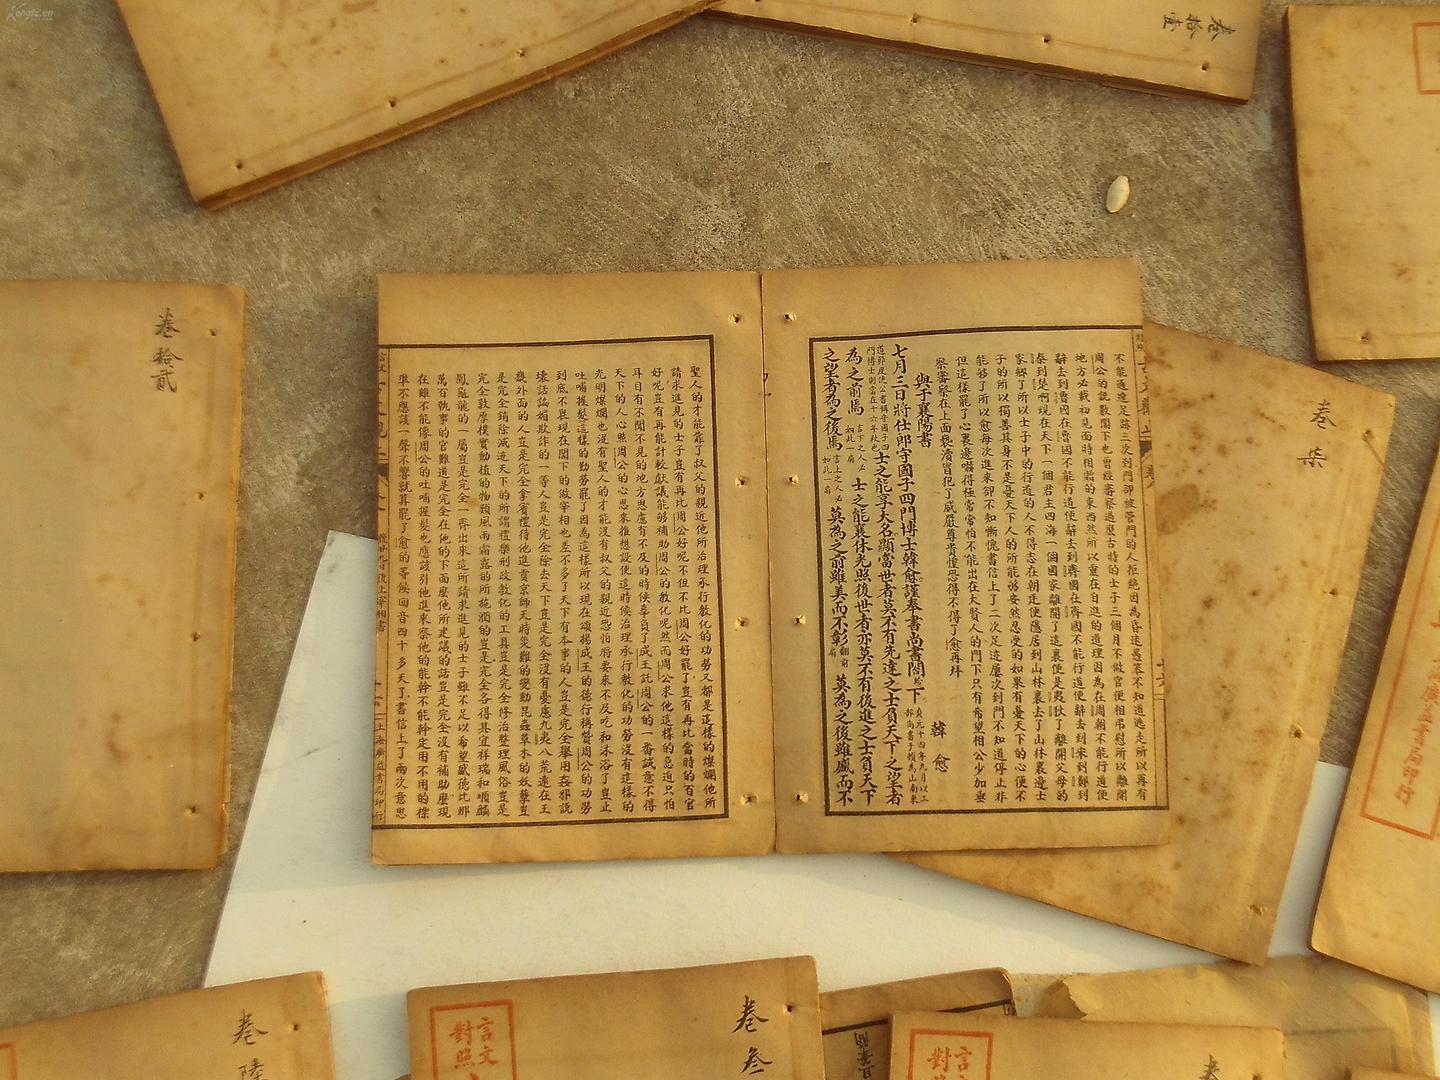 卷拾壹
卷柒
不能通達足跡三次到門卻被管門的人拒絕因為昏迷愚蠢不知道逃走所以再有
周公的說數閣下也曾經審察過麼古時的士子三個月不做官便相弔慰所以離開
地方必載初見面時相贈的東西然所以重在自進的道理因為在周朝不能行道便
辭去到魯國在魯國不能行道便辭去到齊國在齊國不能行道便辭去到宋到鄭到
秦到楚啊現在天下一個君主四海一個國家離開了這裏便是夷狄了離開父母的
家鄉了所以士子中的行道的人不得志在朝廷便隱居到山林裏去了山林裏邊士
子的所以獨善其身不是憂天下人的所能够安然忍受的如果有憂天下的心便不
能够了所以愈每次進來卻不知慚愧書信上了二次足迹屢次到門不知道停止非
但這樣罷了心裏邊嚇得極常常怕不能出在大賢人的門下只有希望相公少加垂
察審察在上面褻瀆冒犯了威嚴尊貴惶恐得不得了愈再拜
與于襄陽書 韓愈
七月三日將仕郎守國子四門博士韓愈謹奉書尚書閤下
士之能享大名顯當世者莫不有先達之士負天下之望者
為之前焉 士之能襄休光照後世者亦莫不有後進之士負天下
之望者為之後焉 莫為之前雖美而不彰 莫為之後雖盛而不
聖人的才能靠了叔父的親近他所治理承行教化的功勞又都是這樣的燦爛他所
請求進見的士子豈有再比周公好呢不但不比周公好罷了豈有再比當時的百官
好呢豈有再能計較獻議能够補助周公的教化呢然而周公求他這樣的急迫只怕
耳目有不聞見的地方思慮有不及的時候辜負了成王託周公的一番誠意不得
天下的人心照周公的心思來推想設使這時候治理承行教化的功勞沒有這樣的
光明燦爛也沒有聖人的才能沒有叔父的親近恐怕將要來不及吃和沐浴了豈止
吐哺握髮這樣的勤勞罷了因為這樣所以現在頌揚成王的德行稱讚周公的功勞
到底不衰現在閣下的做宰相也差不多了天下有本事的人豈是完全舉用姦邪說
壞話諂媚欺詐的一等人豈是完全除去天下豈是完全沒有憂慮九夷八荒遠在王
畿外面的人豈是完全拿賓禮待他進貢京師天時災難的變動昆蟲草木的妖孽豈
是完全銷除滅迹天下的所謂禮樂刑政教化的工具豈是完全修治整理風俗豈是
完全敦厚樸實動植的物類風雨霜露的所施潤的豈是完全各得其宜祥瑞和順麟
鳳龜龍的一屬豈是完全一齊出來這所請求進見的士子雖不足以希望盛德比那
萬百執事的官難道是完全在他的下面麼他所建議的話豈是完全沒有補助麼現
在雖不能像周公的吐哺握髮也應該引他進來察他的能幹不能幹定用不用的標
準不應該一聲不響就算罷了愈的等候回音四十多天了書信上了兩次意思
後廿九日復上宰相書
上海廣益書局印行
卷拾貳
上海廣益書局印行
言文對照
卷叁
言文對照
卷
卷陸